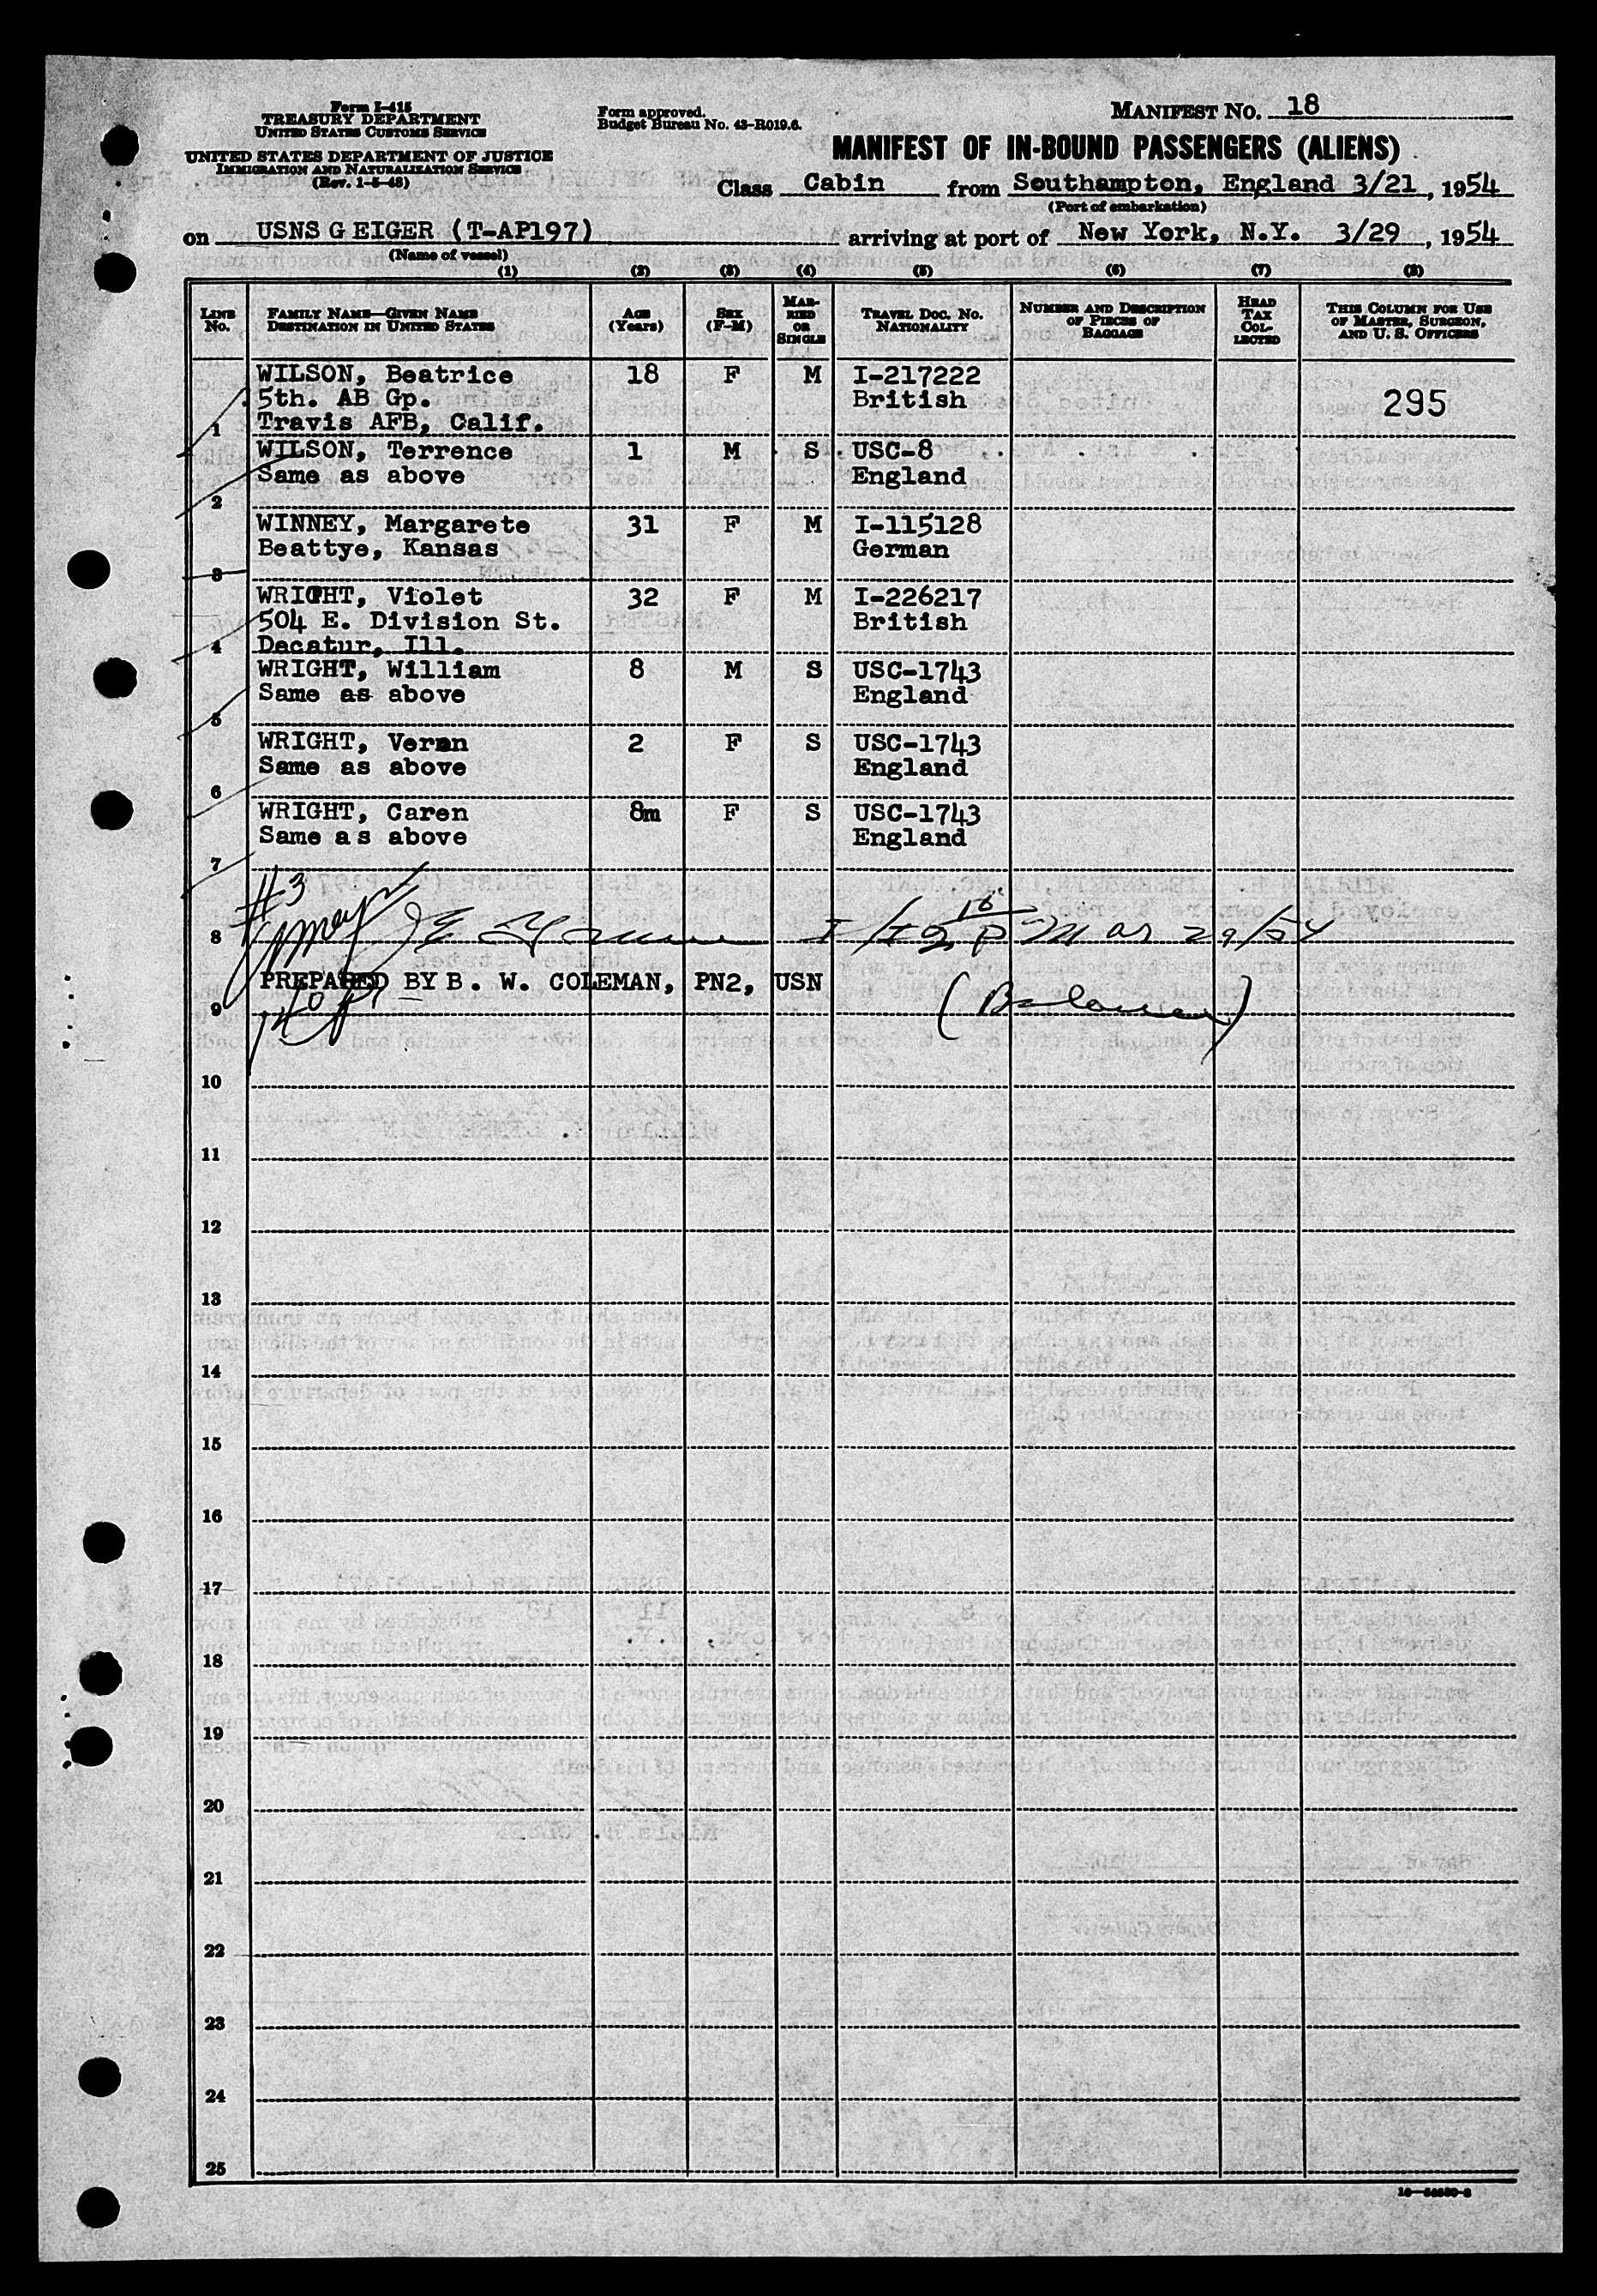 Form I-415
TREASURY DEPARTMENT
UNITED STATES CUSTOMS SERVICE
UNITED STATES DEPARTMENT OF JUSTICE
IMMIGRATION AND NATURALIZATION SERVICE
(Rev. 1-5-48)
Form approved.
Budget Bureau No. 43-R019.6.
MANIFEST NO. 18
MANIFEST OF IN-BOUND PASSENGERS (ALIENS)
Class Cabin from Southampton, England 3/21, 1954
(Port of embarkation)
on USNS G EIGER (T-AP197) arriving at port of New York, N.Y. 3/29, 1954
(Name of vessel)
(1) (2) (3) (4) (5) (6) (7) (8)
LINE No. FAMILY NAME—GIVEN NAME DESTINATION IN UNITED STATES AGE (Years) SEX (F-M) MARRIED OR SINGLE TRAVEL DOC. NO. NATIONALITY NUMBER AND DESCRIPTION OF PIECES OF BAGGAGE HEAD TAX COLLECTED THIS COLUMN FOR USE OF MASTER, SURGEON, AND U. S. OFFICERS
WILSON, Beatrice 18 F M I-217222
5th. AB Gp. British 295
1 Travis AFB, Calif.
WILSON, Terrence 1 M S USC-8
Same as above England
2
WINNEY, Margarete 31 F M I-115128
Beattye, Kansas German
3
WRIGHT, Violet 32 F M I-226217
504 E. Division St. British
4 Decatur, Ill.
WRIGHT, William 8 M S USC-1743
Same as above England
5
WRIGHT, Veran 2 F S USC-1743
Same as above England
6
WRIGHT, Caren 8m F S USC-1743
Same as above England
7
#3
8 Mar 29/54
PREPARED BY B. W. COLEMAN, PN2, USN
9
10
11
12
13
14
15
16
17
18
19
20
21
22
23
24
25